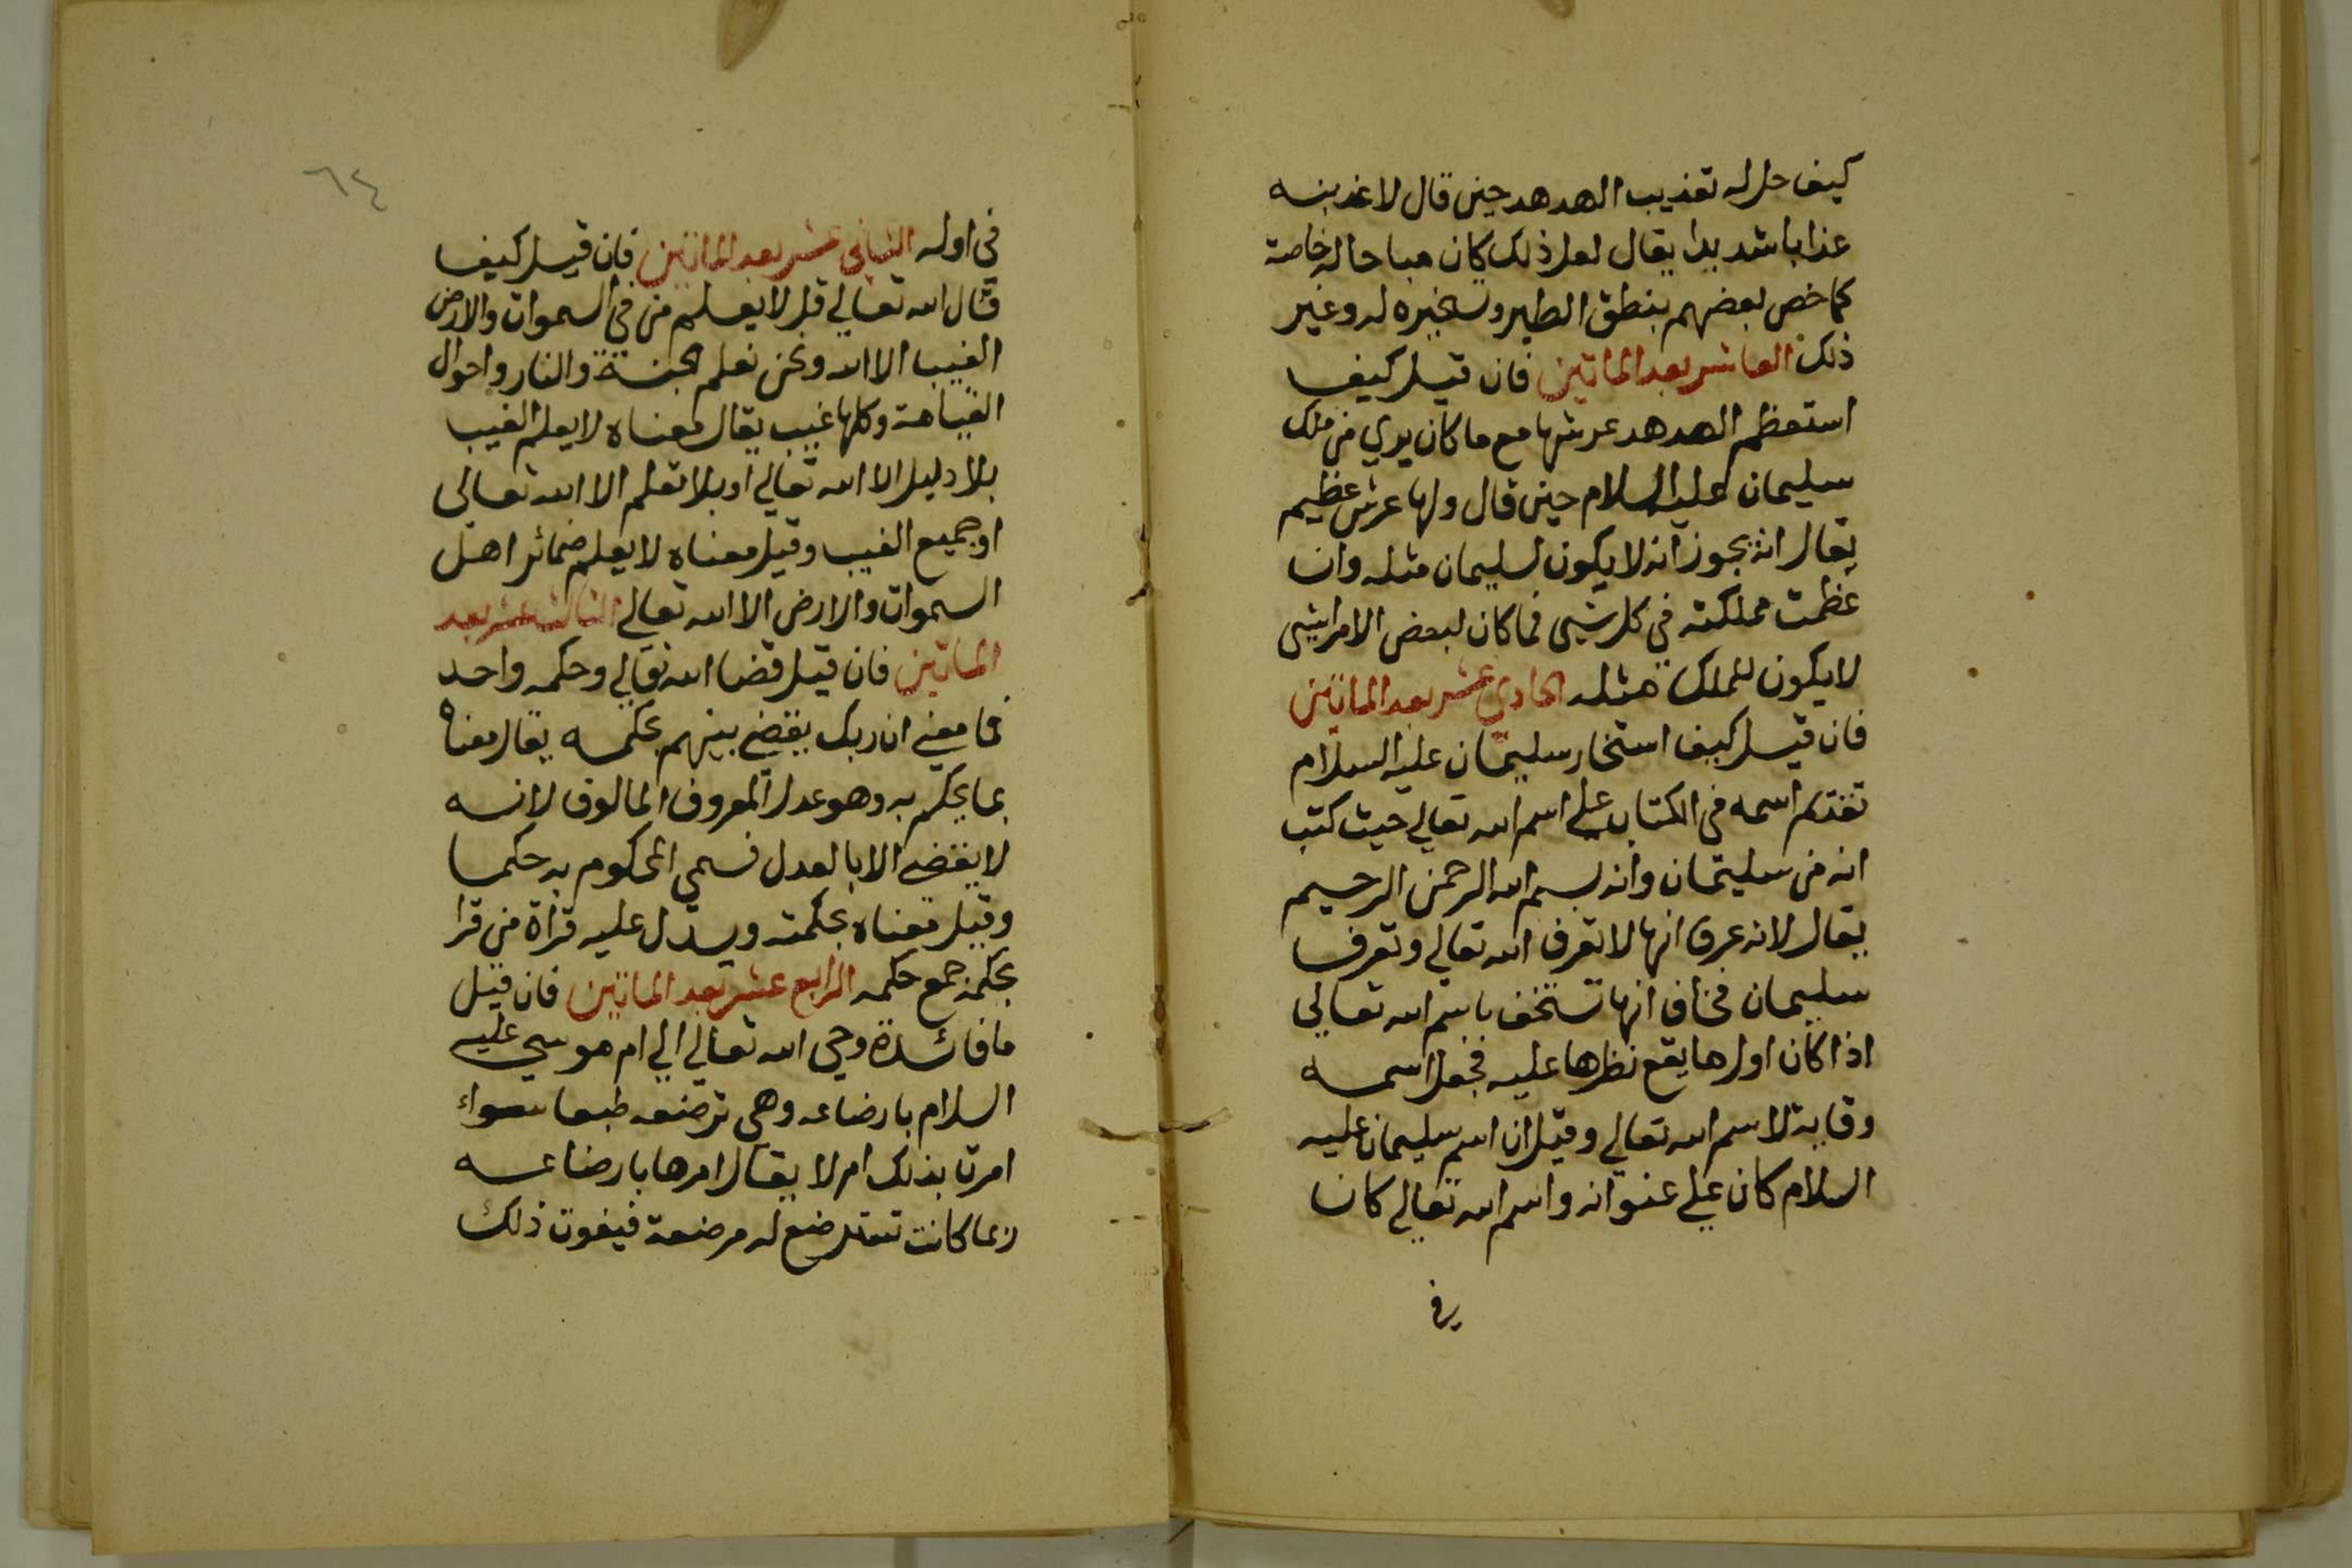 كيف حل له تعذيب الهدهد حين قال لاعذبنه
عذابا شديدا يقال لعل ذلك كان مباحا له خاصة
كما خص بعضهم بنطق الطير وتسخيره له وغير
ذلك العاشر بعد الماتين فان قيل كيف
استعظم الهدهد عرشها مع ما كان يري من ملك
سليمان عليه السلام حين قال ولها عرش عظيم
يقال انه يجوز انه لا يكون لسليمان مثله وان
عظمت مملكته في كل شيى فما كان لبعض الامرا شيى
لا يكون للملك مثله الحادي عشر بعد الماتين
فان قيل كيف استخار سليمان عليه السلام
تقدم اسمه في الكتاب علي اسم الله تعالي حيث كتب
انه من سليمان وانه بسم الله الرحمن الرحيم
يقال لانه عرف انها لا تعرف الله تعالي وتعرف
سليمان فخاف انها تستخف باسم الله تعالي
اذا كان اول ما يقع نظرها عليه فجعل اسمه
وقاية لاسم الله تعالي وقيل ان اسم سليمان عليه
السلام كان علي عنوانه واسم الله تعالي كان
في
٦٤
في اوله الثاني عشر بعد الماتين فان قيل كيف
قال الله تعالي قل لا يعلم من في السموات والارض
الغيب الا الله ونحن نعلم الجنة والنار واحوال
القيامة وكلها غيب يقال معناه لا يعلم الغيب
بلا دليل الا الله تعالي او بلا تعلم الا الله تعالى
او جميع الغيب وقيل معناه لا يعلم ضمائر اهل
السموات والارض الا الله تعالي الثالث عشر بعد
الماتين فان قيل قضا الله تعالي وحكمه واحد
فما معني ان ربك يقضي بينهم بحكمه يقال معناه
بما يحكم به وهو عدل المعروف المالوف لانه
لا يقضي الا بالعدل فسمي المحكوم به حكما
وقيل معناه بحكمته ويدل عليه قراة من قرا
بحكمه جمع حكمه الرابع عشر بعد الماتين فان قيل
ما فائدة وحي الله تعالي الي ام موسي عليه
السلام بارضاعه وهي ترضعه طبعا سواء
امرت بذلك ام لا يقال امرها بارضاعه
ربما كانت تسترضع له مرضعة فيفوت ذلك